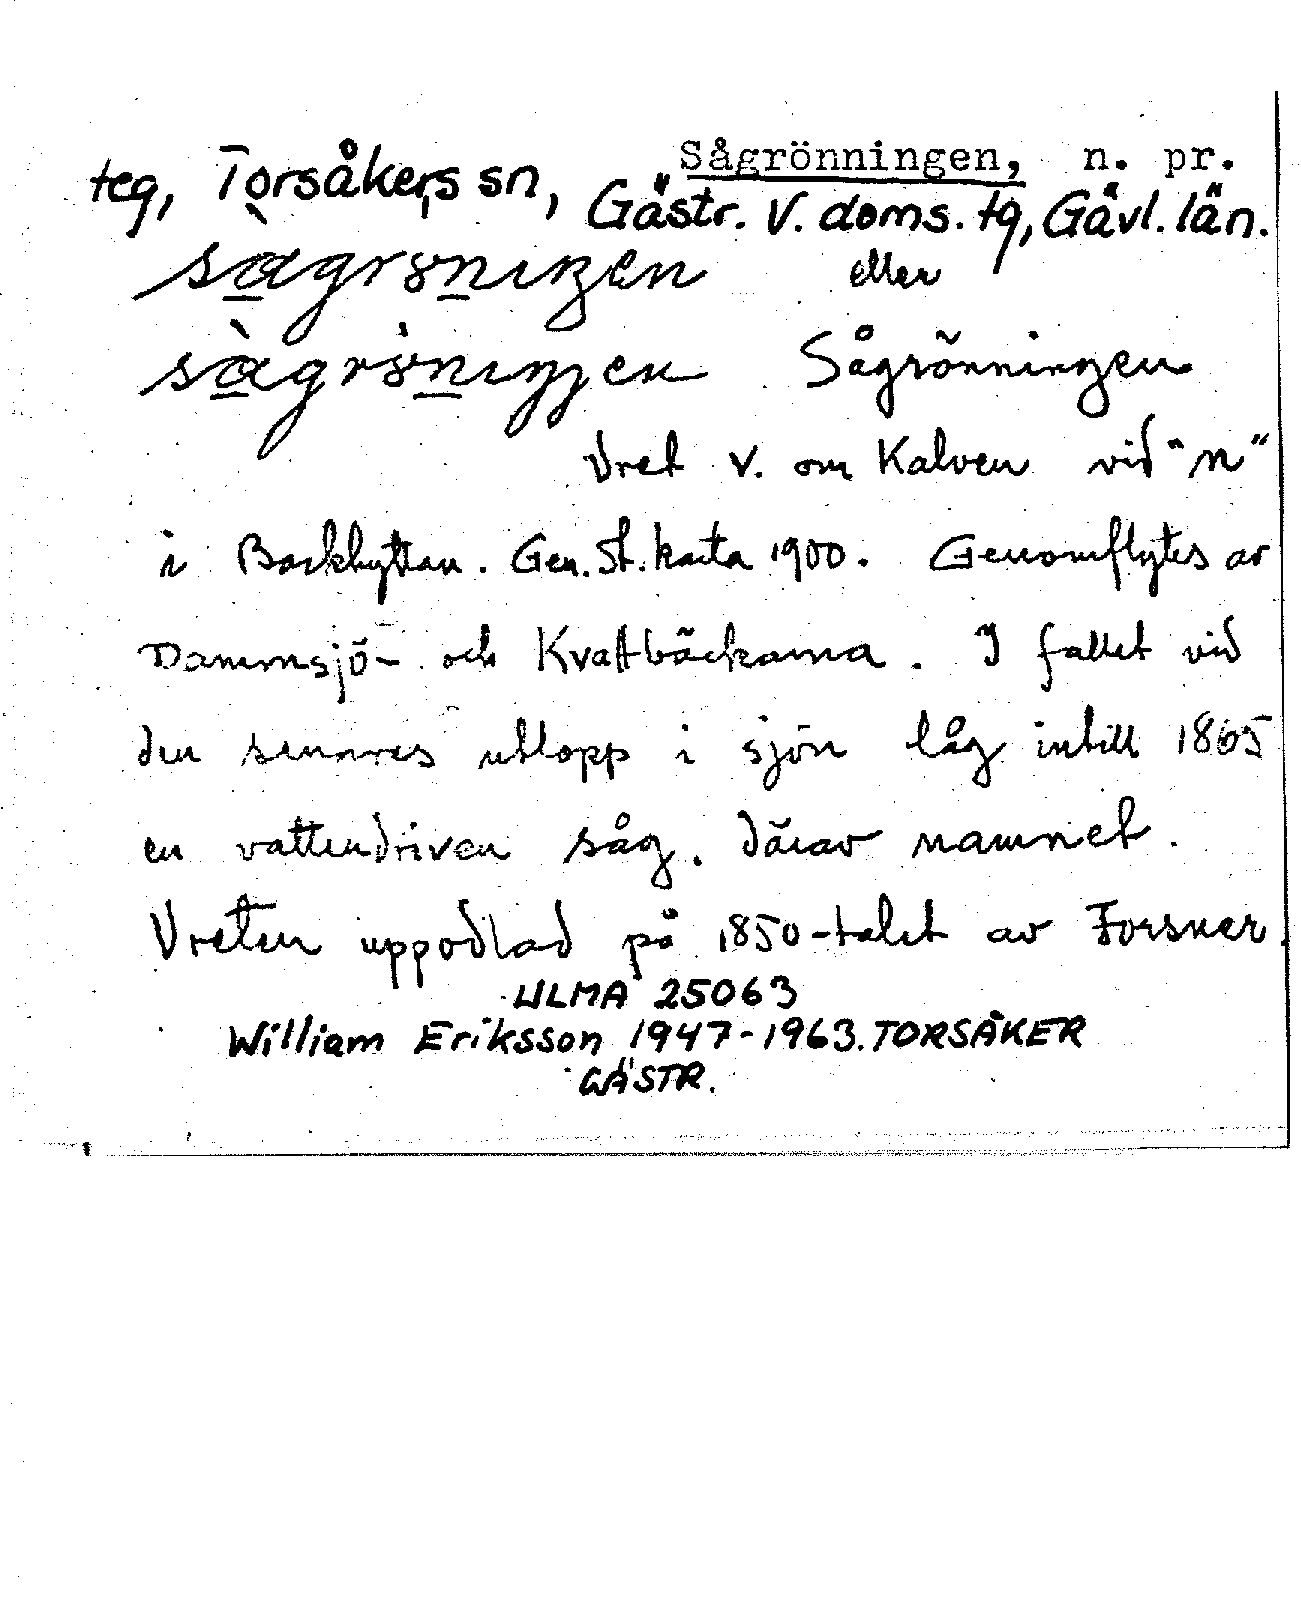 Sågrönningen, n. pr.
teg, Torsåkers sn, Gästr. V. doms. tg, Gävl. län.
eller
Sågrönningen
Vret V. om Kalven vid "n"
i Backhyttan. Gen. St. karta 1900. Genomflytes av
Dammsjö- och Kvattbäckarna. I fallet vid
den senares utlopp i sjön låg intill 1865
en vattendriven såg. Därav namnet.
Vreten uppodlad på 1850-talet av Forsner.
ULMA 25063
William Eriksson 1947-1963. TORSÅKER
GÄSTR.